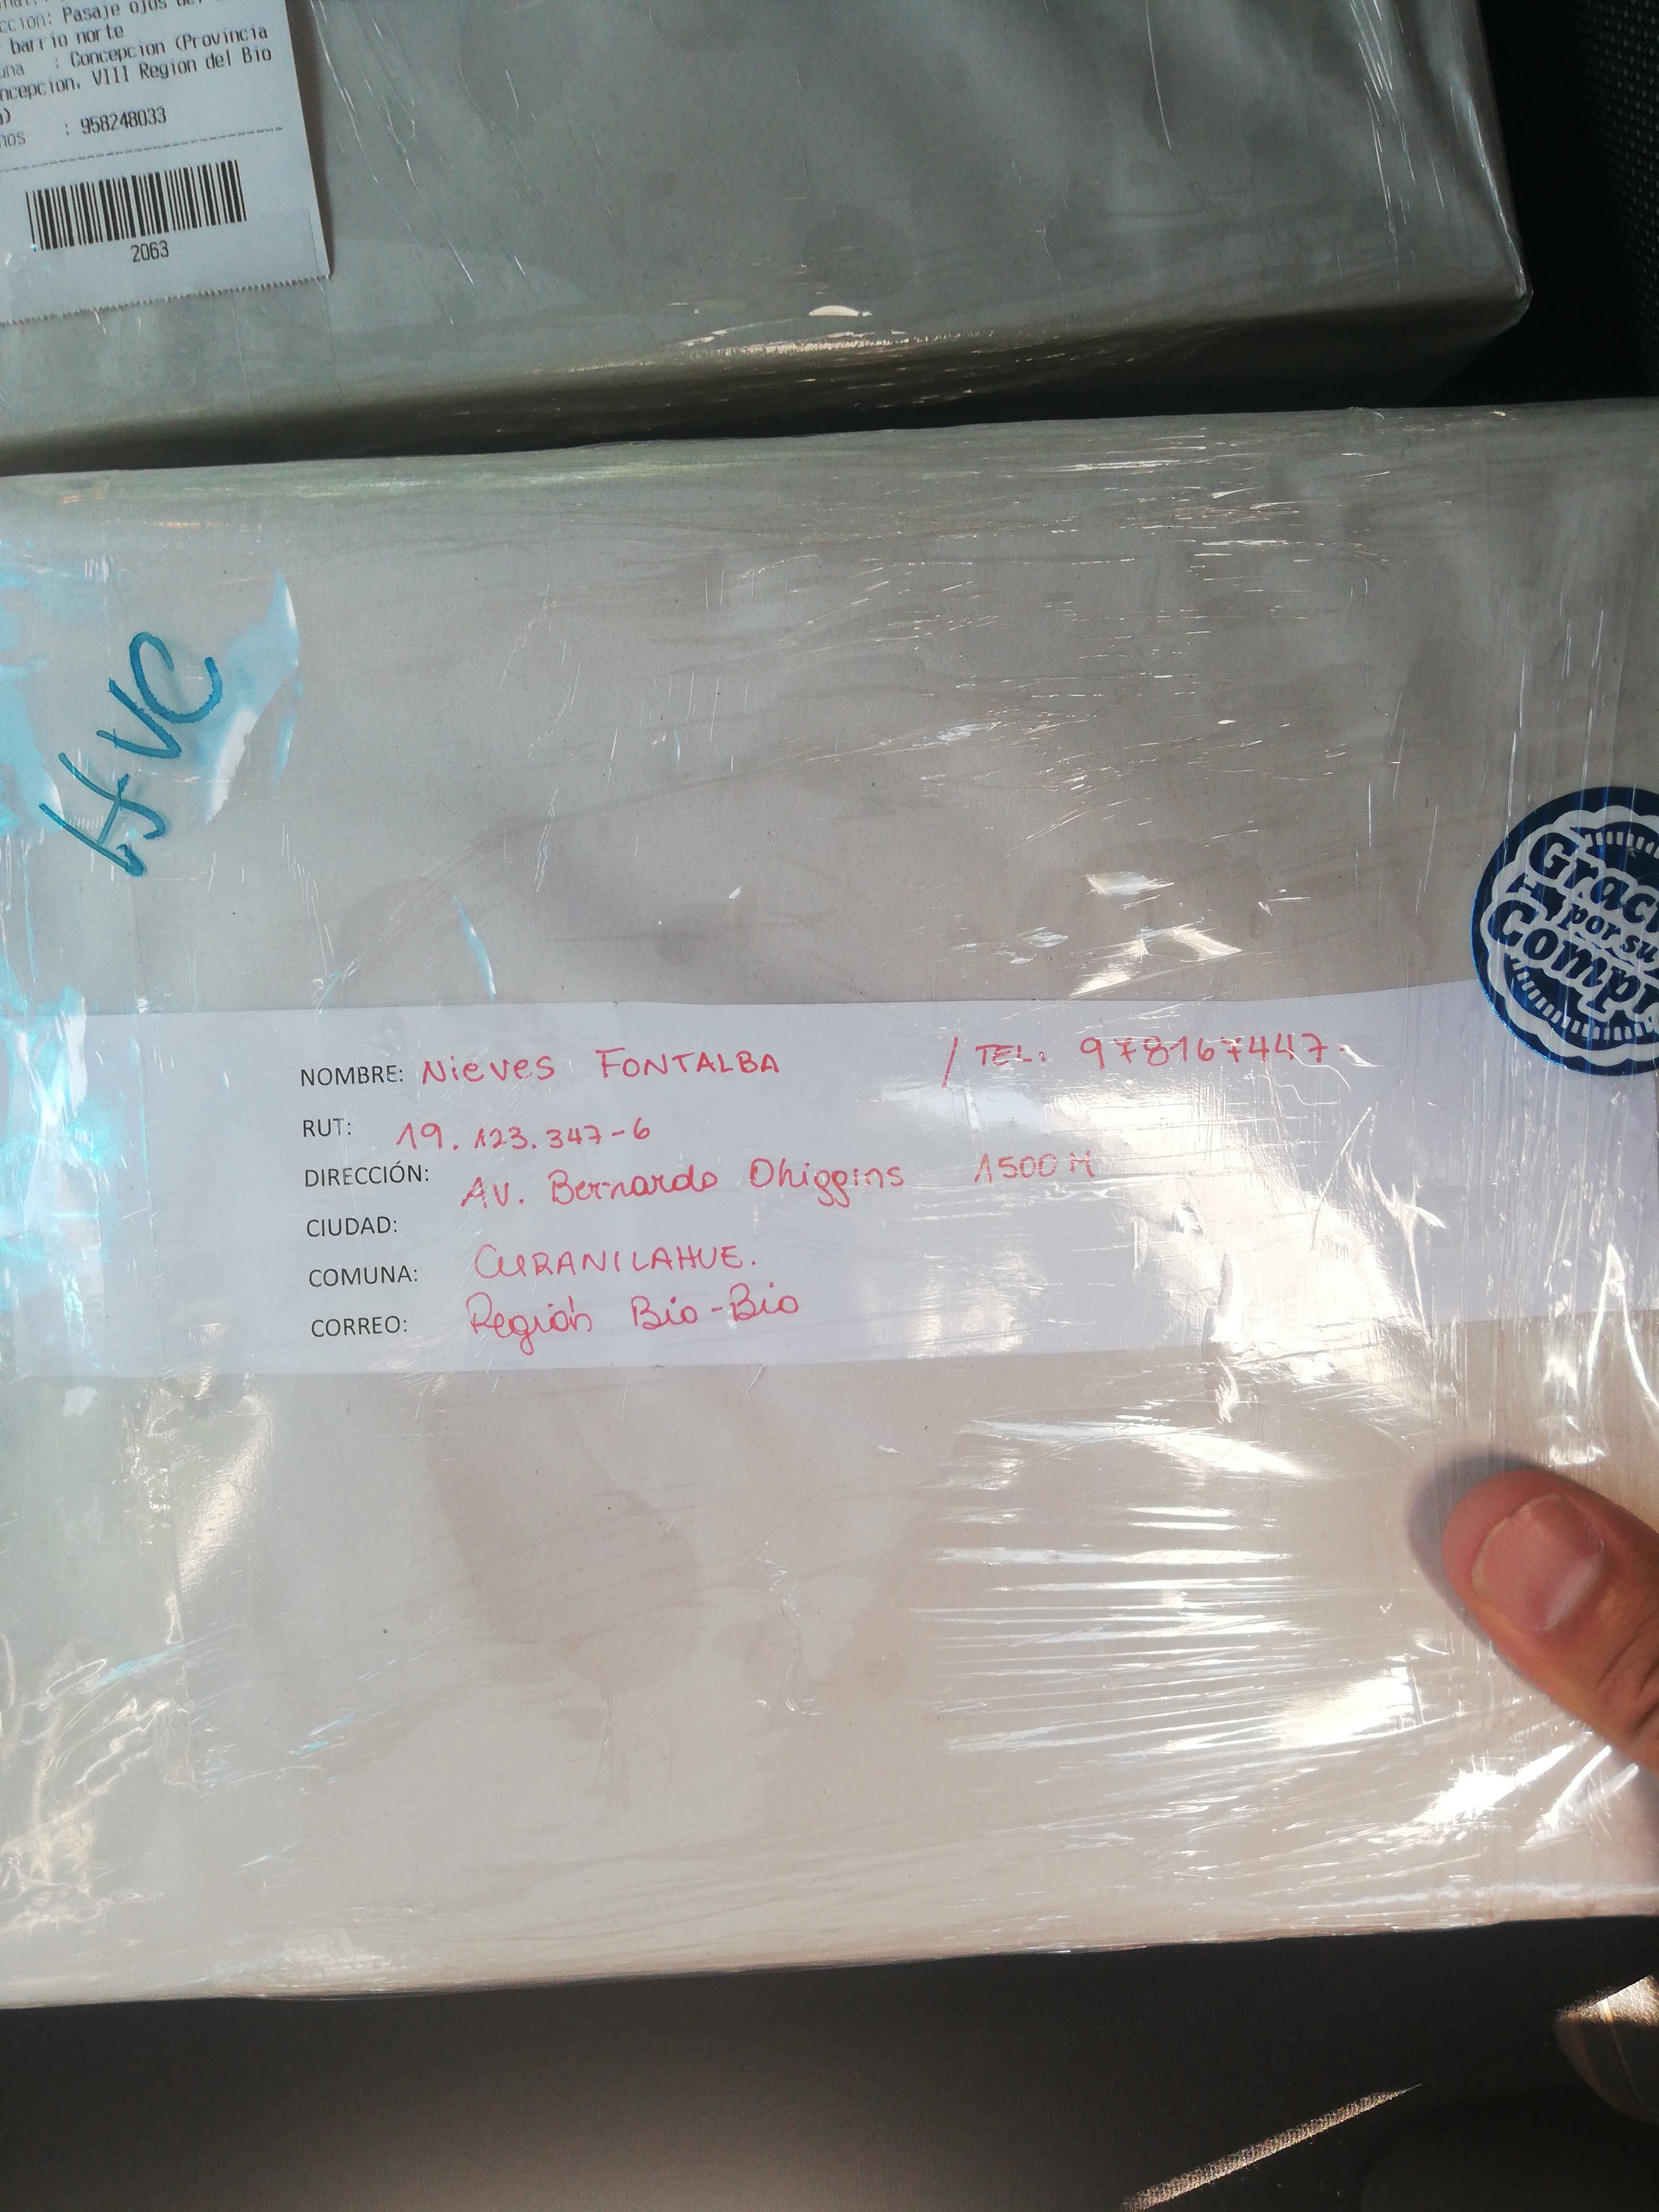 cción: Pasaje ojos
barrio norte
una : Concepcion (Provincia
ncepcion, VIII Region del Bio
)
nos : 958248033
2063
HVC
Graci
por su
Compra
NOMBRE: Nieves FONTALBA / TEL: 978167447
RUT: 19.123.347-6
DIRECCIÓN: AV. Bernardo Ohiggins 1500 H
CIUDAD:
COMUNA: CURANILAHUE.
CORREO: Región Bio-Bio